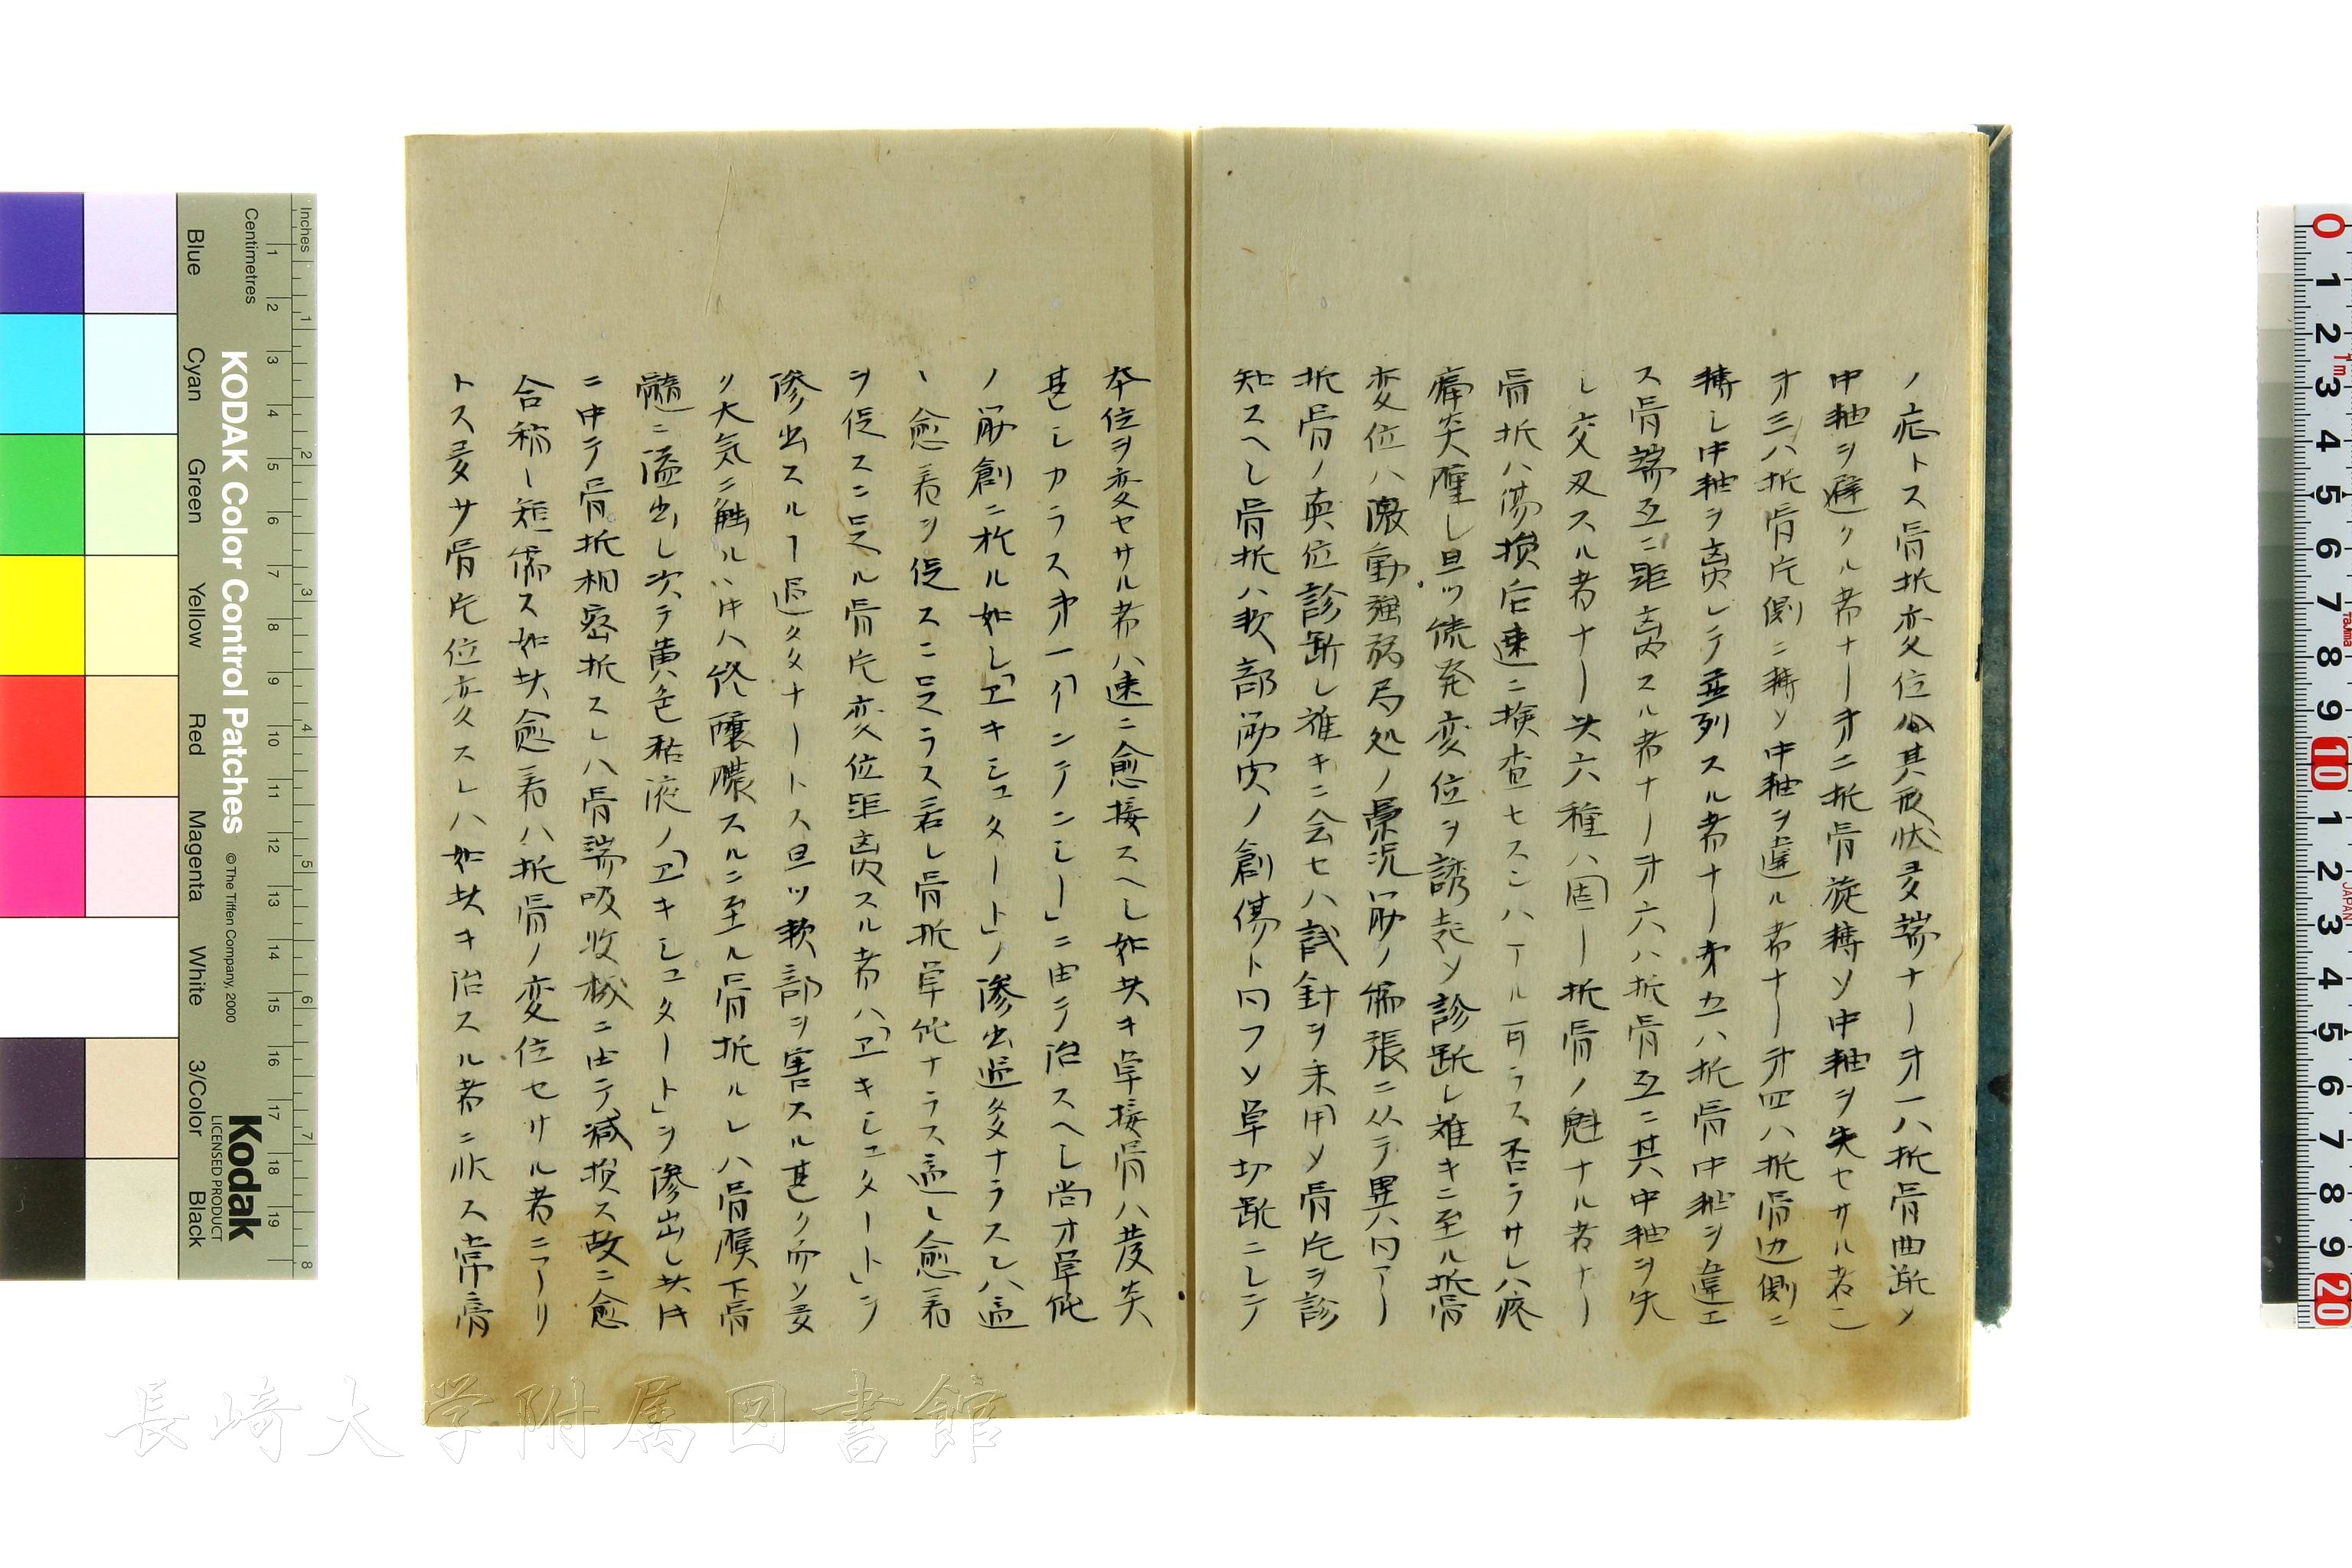 ノ応トス骨折変位ハ其形状多端ナリオ一ハ折骨曲断ソ
中軸ヲ避クル者ナリオ二折骨旋轉ソ中軸ヲ失セサル者ニ
オ三ハ折骨片側ニ轉ソ中軸ヲ違ル者ナリオ四ハ折骨辺側ニ
轉シ中軸ヲ离レテ並列スル者ナリオ五ハ折骨中軸ヲ違エ
ス骨端互ニ距离スル者ナリオ六ハ折骨互ニ其中軸ヲ失
シ交叉スル者ナリ此六種ハ固ヨリ折骨ノ魁ナル者ナリ
骨折ハ傷損后速ニ検査セスンハアル可ラス否ラサレハ疼
痛焮腫シ且ツ続発変位ヲ誘起ソ診断シ難キニ至ル折骨
変位ハ激動強弱局処ノ景況筋ノ偏張ニ从テ異同アリ
折骨ノ真位診断シ難キニ会セハ試針ヲ采用ソ骨片ヲ診
知スヘシ骨折ハ軟部筋肉ノ創傷ト同フソ単切断ニシテ
本位ヲ変セサル者ハ速ニ愈接スヘシ如此キ単接骨ハ発炎
甚シカラスオ一「インテンシー」ニ由テ治スヘシ尚オ単純
ノ筋創ニ於ル如シ「エキシュタート」ノ滲出過多ナラスンハ適
、愈着ヲ促スニ足ラス若シ骨折単純ナラス適シ愈着
ヲ促スニ足ル骨片変位距离スル者ハ「エキシュタート」ヲ
滲出スルヿ過多ナリトス且ツ軟部ヲ害スル甚クソ多
ク大気ニ触ルヽ片ハ終醸膿スルニ至ル骨折ルレハ骨膜下骨
髄ニ溢出シ次テ黄色粘液ノ「エキシュタート」ヲ滲出シ此片
ニ中テ骨折相密折スレハ骨端吸收機ニ由テ減損ス故ニ愈
合稍ヽ短縮ス如此愈着ハ折骨ノ変位セサル者ニアリ
トス多サ骨片位変スレハ如此キ治スル者ニ非ス常骨
長崎大学附属図書館
KODAK Color Control Patches
© The Tiffen Company, 2000
Kodak
LICENSED PRODUCT
Inches
Centimetres
Blue
Cyan
Green
Yellow
Red
Magenta
White
3/Color
Black